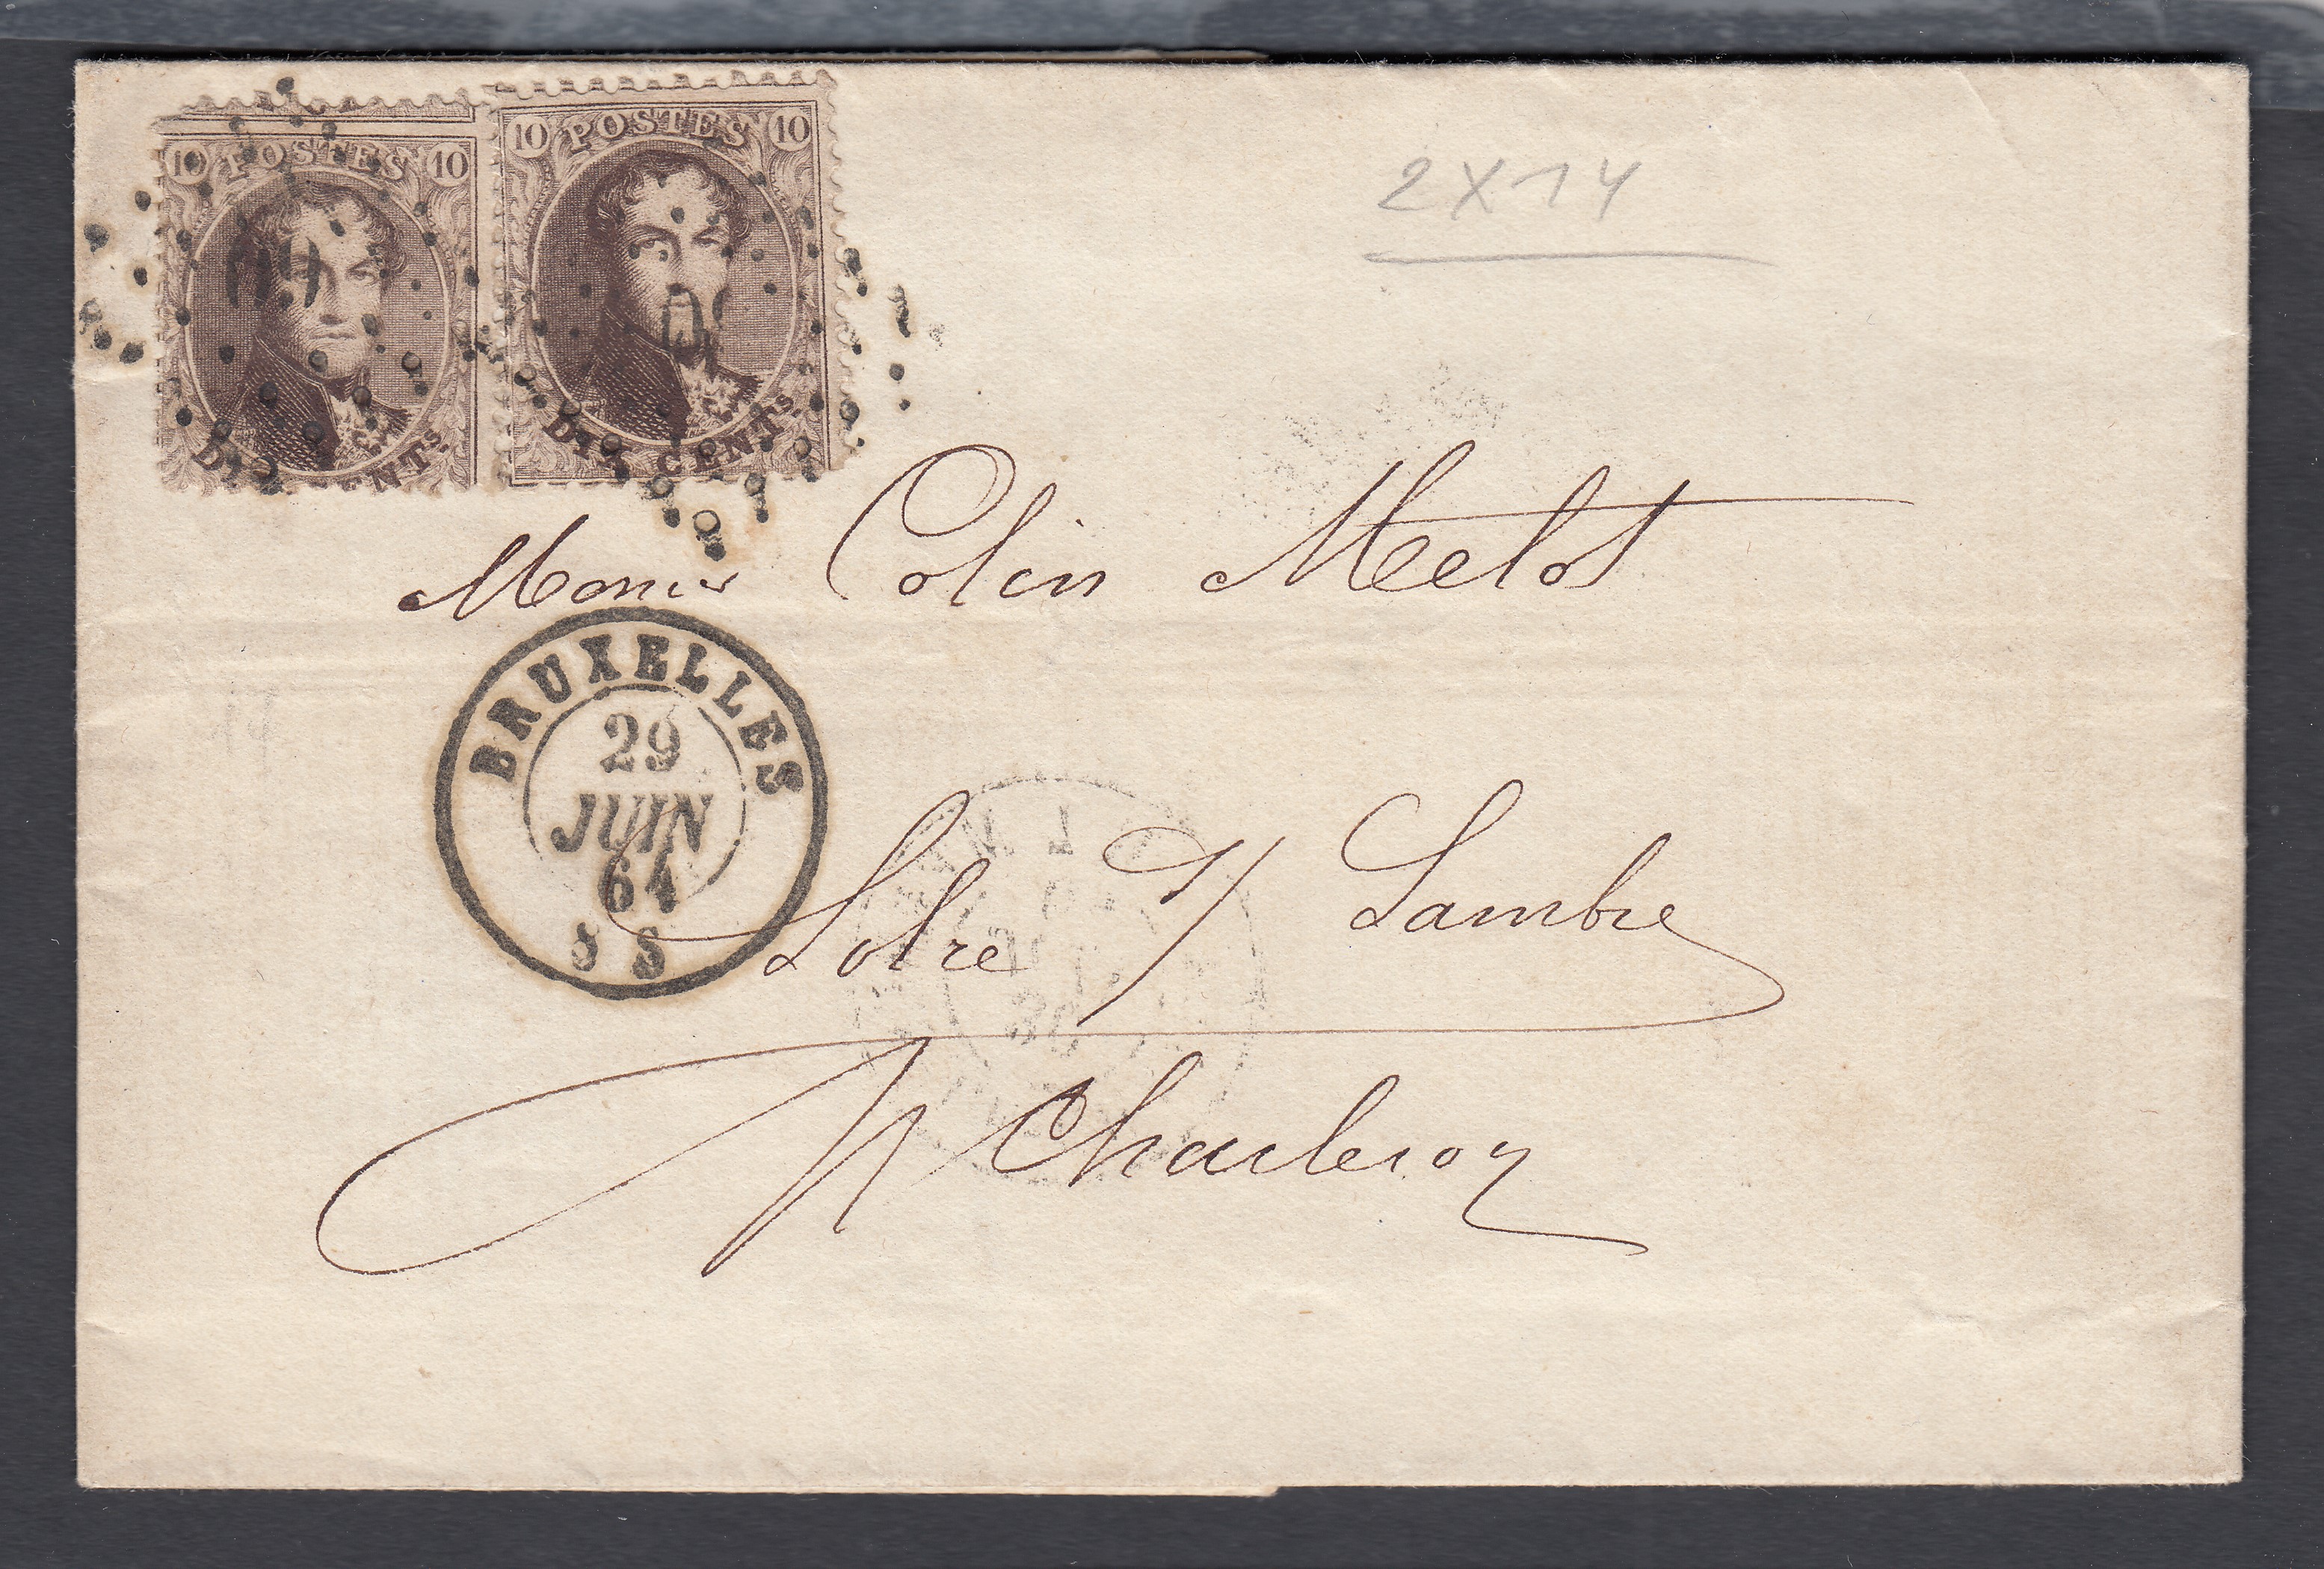 10 POSTES 10
DIX CENTS.
10 POSTES 10
DIX CENTS.
2 X 14
Colin Melot
BRUXELLES
29
JUIN
64
8 S
Solre s/ Sambre
Charleroy